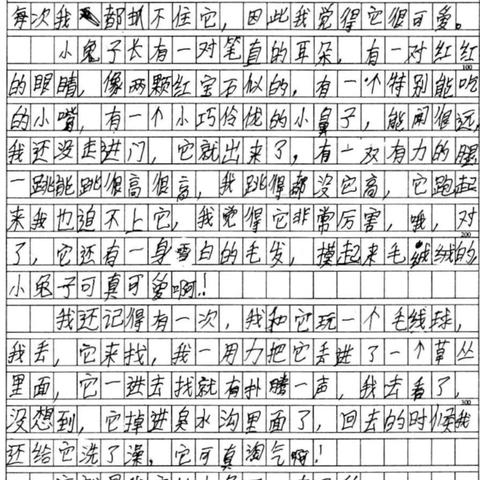 每次我都抓不住它，因此我觉得它很可爱。
小兔子长有一对笔直的耳朵，有一对红红
的眼睛，像两颗红宝石似的，有一个特别能吃
的小嘴，有一个小巧伶优的小鼻子，能闻很远，
我还没走进门，它就出来了，有一双有力的腿
一跳能跳很高很高，我跳得都没它高，它跑起
来我也追不上它，我觉得它非常厉害，哦，对
了，它还有一身雪白的毛发，摸起来毛绒绒的，
小兔子可真可爱啊！
我还记得有一次，我和它玩一个毛线球，
我丢，它来找，我一用力把它丢进了一个草丛
里面，它一进去找就有扑腾一声，我去看了，
没想到，它掉进臭水沟里面了，回去的时候我
还给它洗了澡，它可真淘气啊！